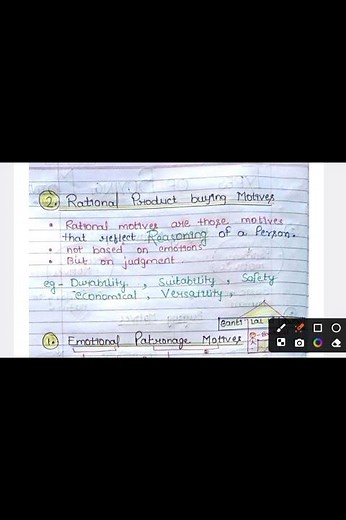 2. Rational Product buying Motives
• Rational motives are those motives
that reflect Reasoning of a Person.
• not based on emotions
• But on judgment
eg - Durability, Suitability, Safety
economical, Versatility,
Banti Lal
1. Emotional Patronage Motives